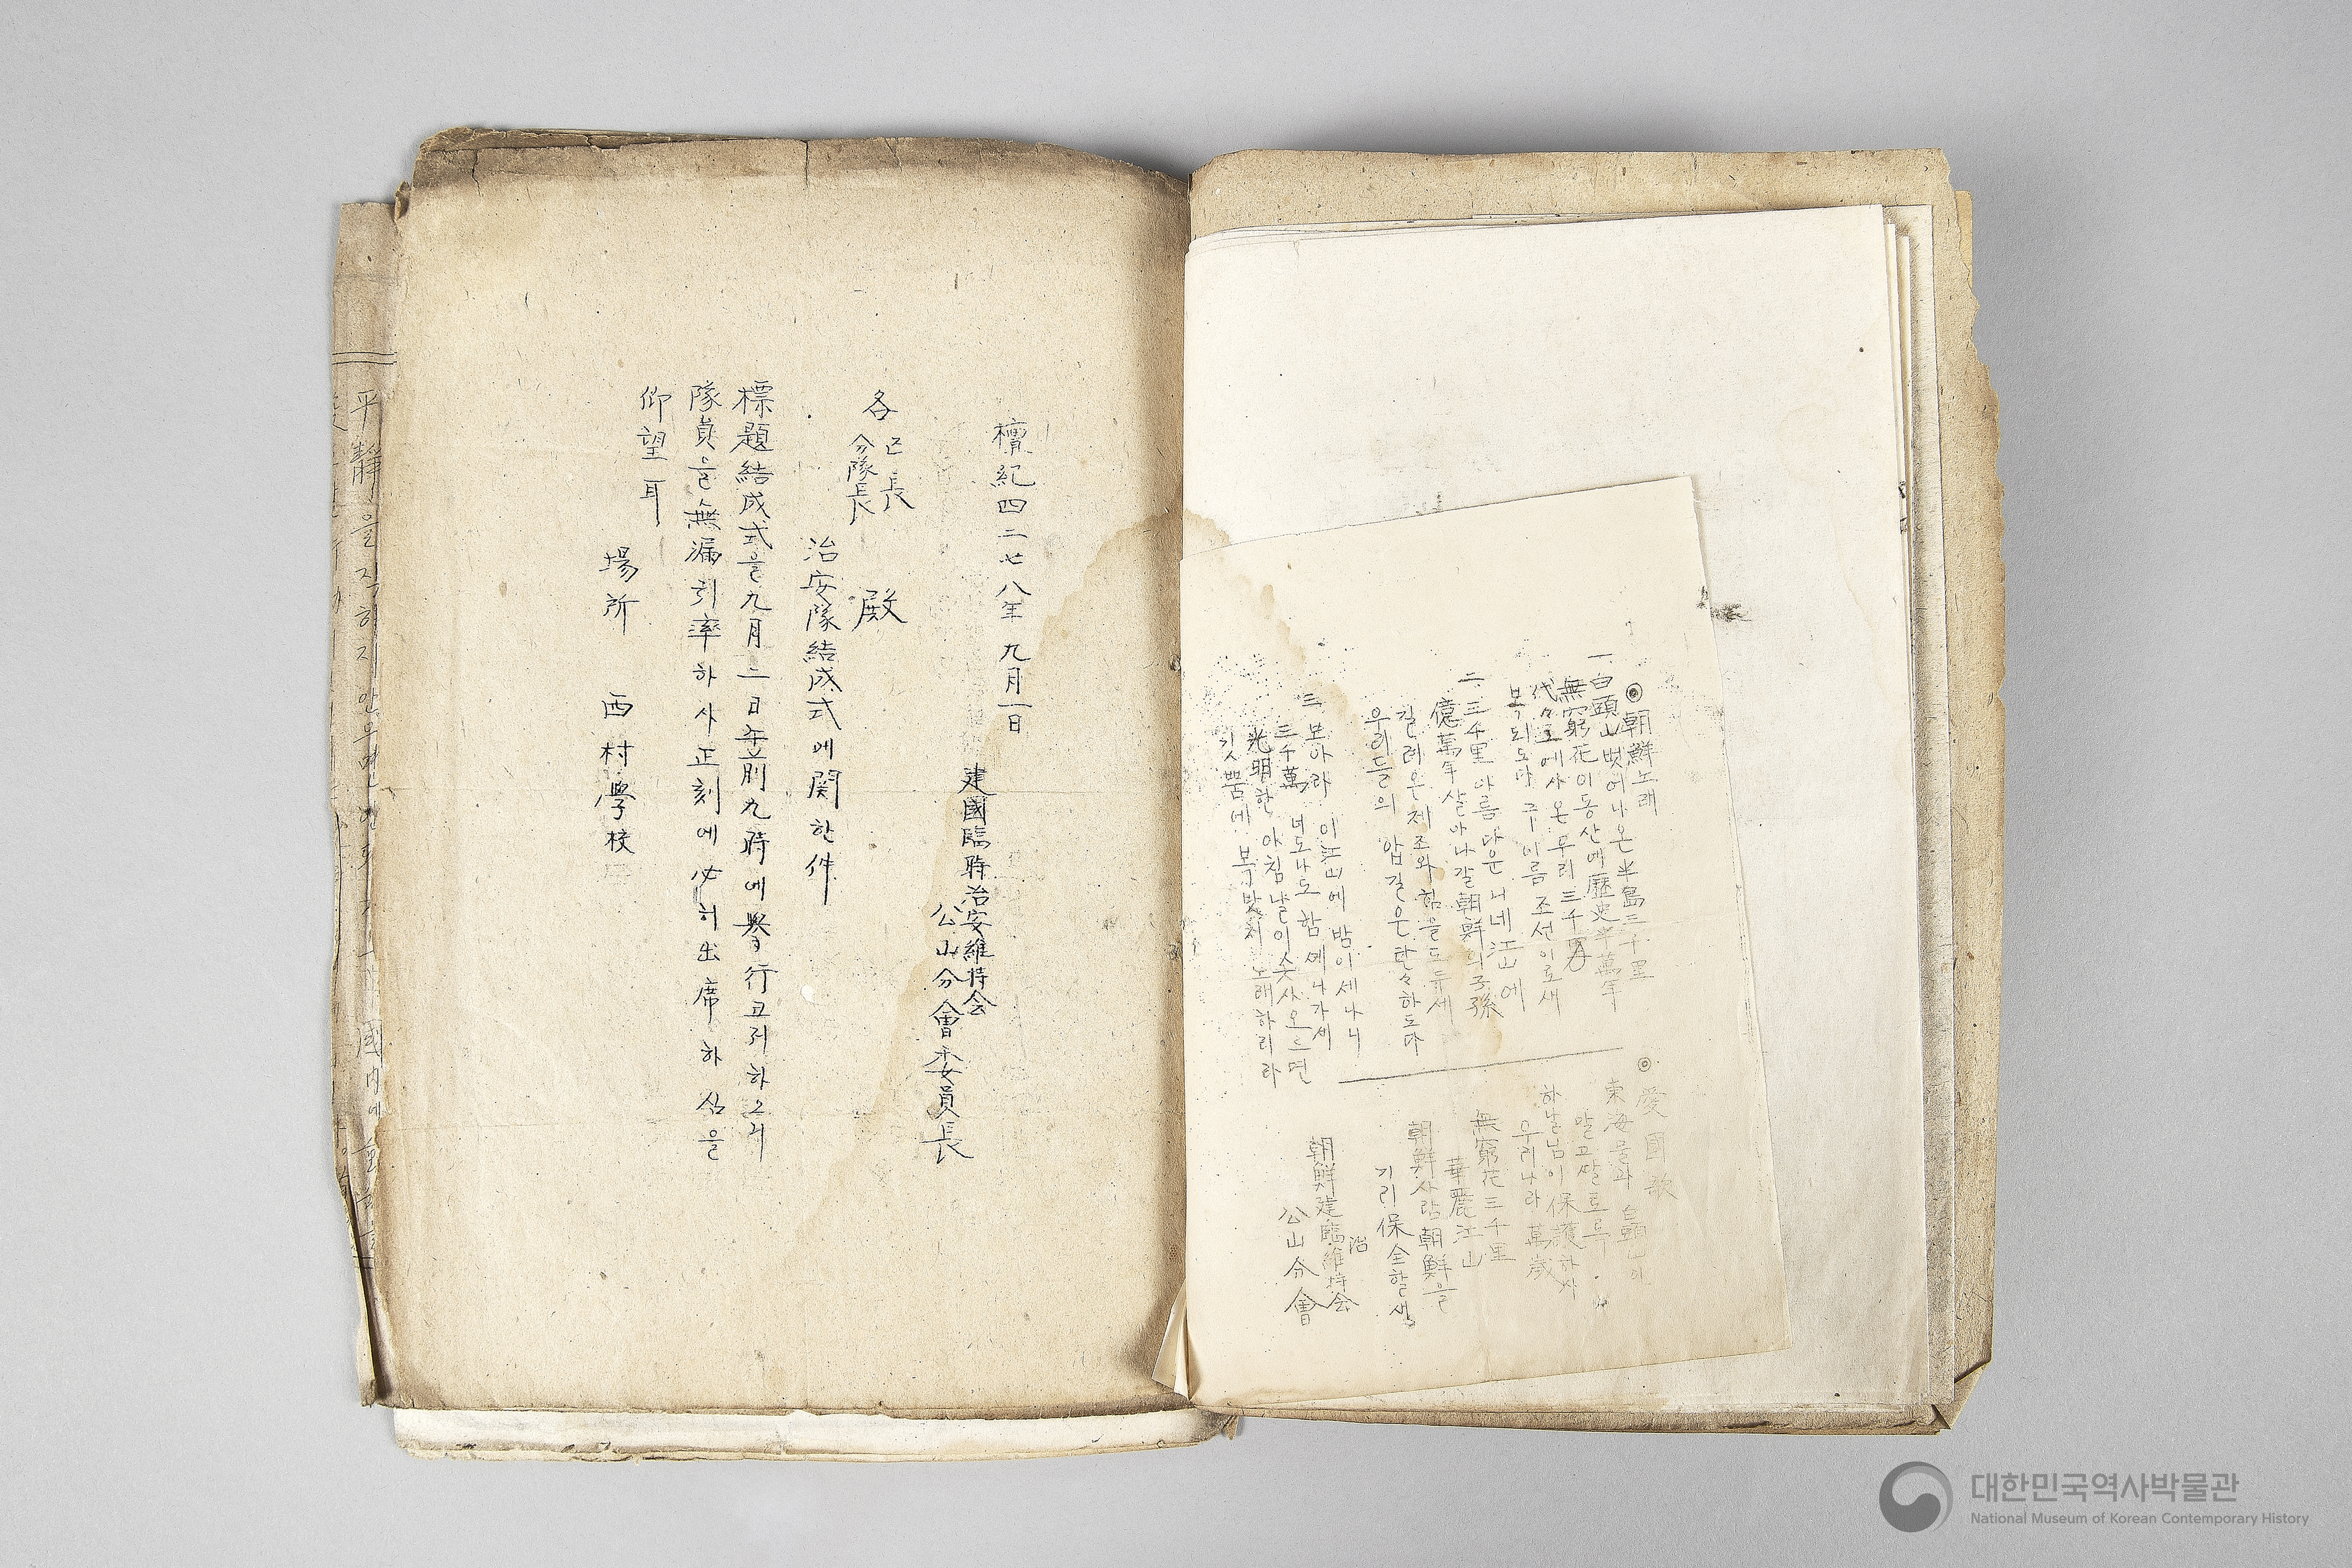 檀紀四二七八年 九月一日
建國臨時治安維持会
公山分會委員長
各 区長
分隊長 殿
治安隊結成式에関한件
標題結成式을九月二日午前九時에擧行코저하오니
隊員을無漏引率하사正刻에必히出席하심을
仰望耳
場所 西村學校
平靜을직히지안으면
國內에
◎朝鮮노래
一 白頭山벗어나온半島三千里
無窮花이동산에歷史半萬年
代々로예사는우리三千万
복되도다 그이름 조선이로세
二 三千里 아름다운 이네江山에
億萬年살아나갈朝鮮의子孫
길러온 재조와힘을도두세
우리들의 압길은탄々하도다
三 보아라 이江山에 밤이세나니
三千萬 너도나도 함께나가세
光明한 아침날이솟사오르면
깃뿜에 북밧처 노래하리라
◎愛國歌
東海물과 白頭산이
말으고달토록
하날님이保護하사
우리나라 萬歲
無窮花三千里
華麗江山
朝鮮사람朝鮮을
기리保全할세
朝鮮建臨治維持会
公山分會
대한민국역사박물관
National Museum of Korean Contemporary History